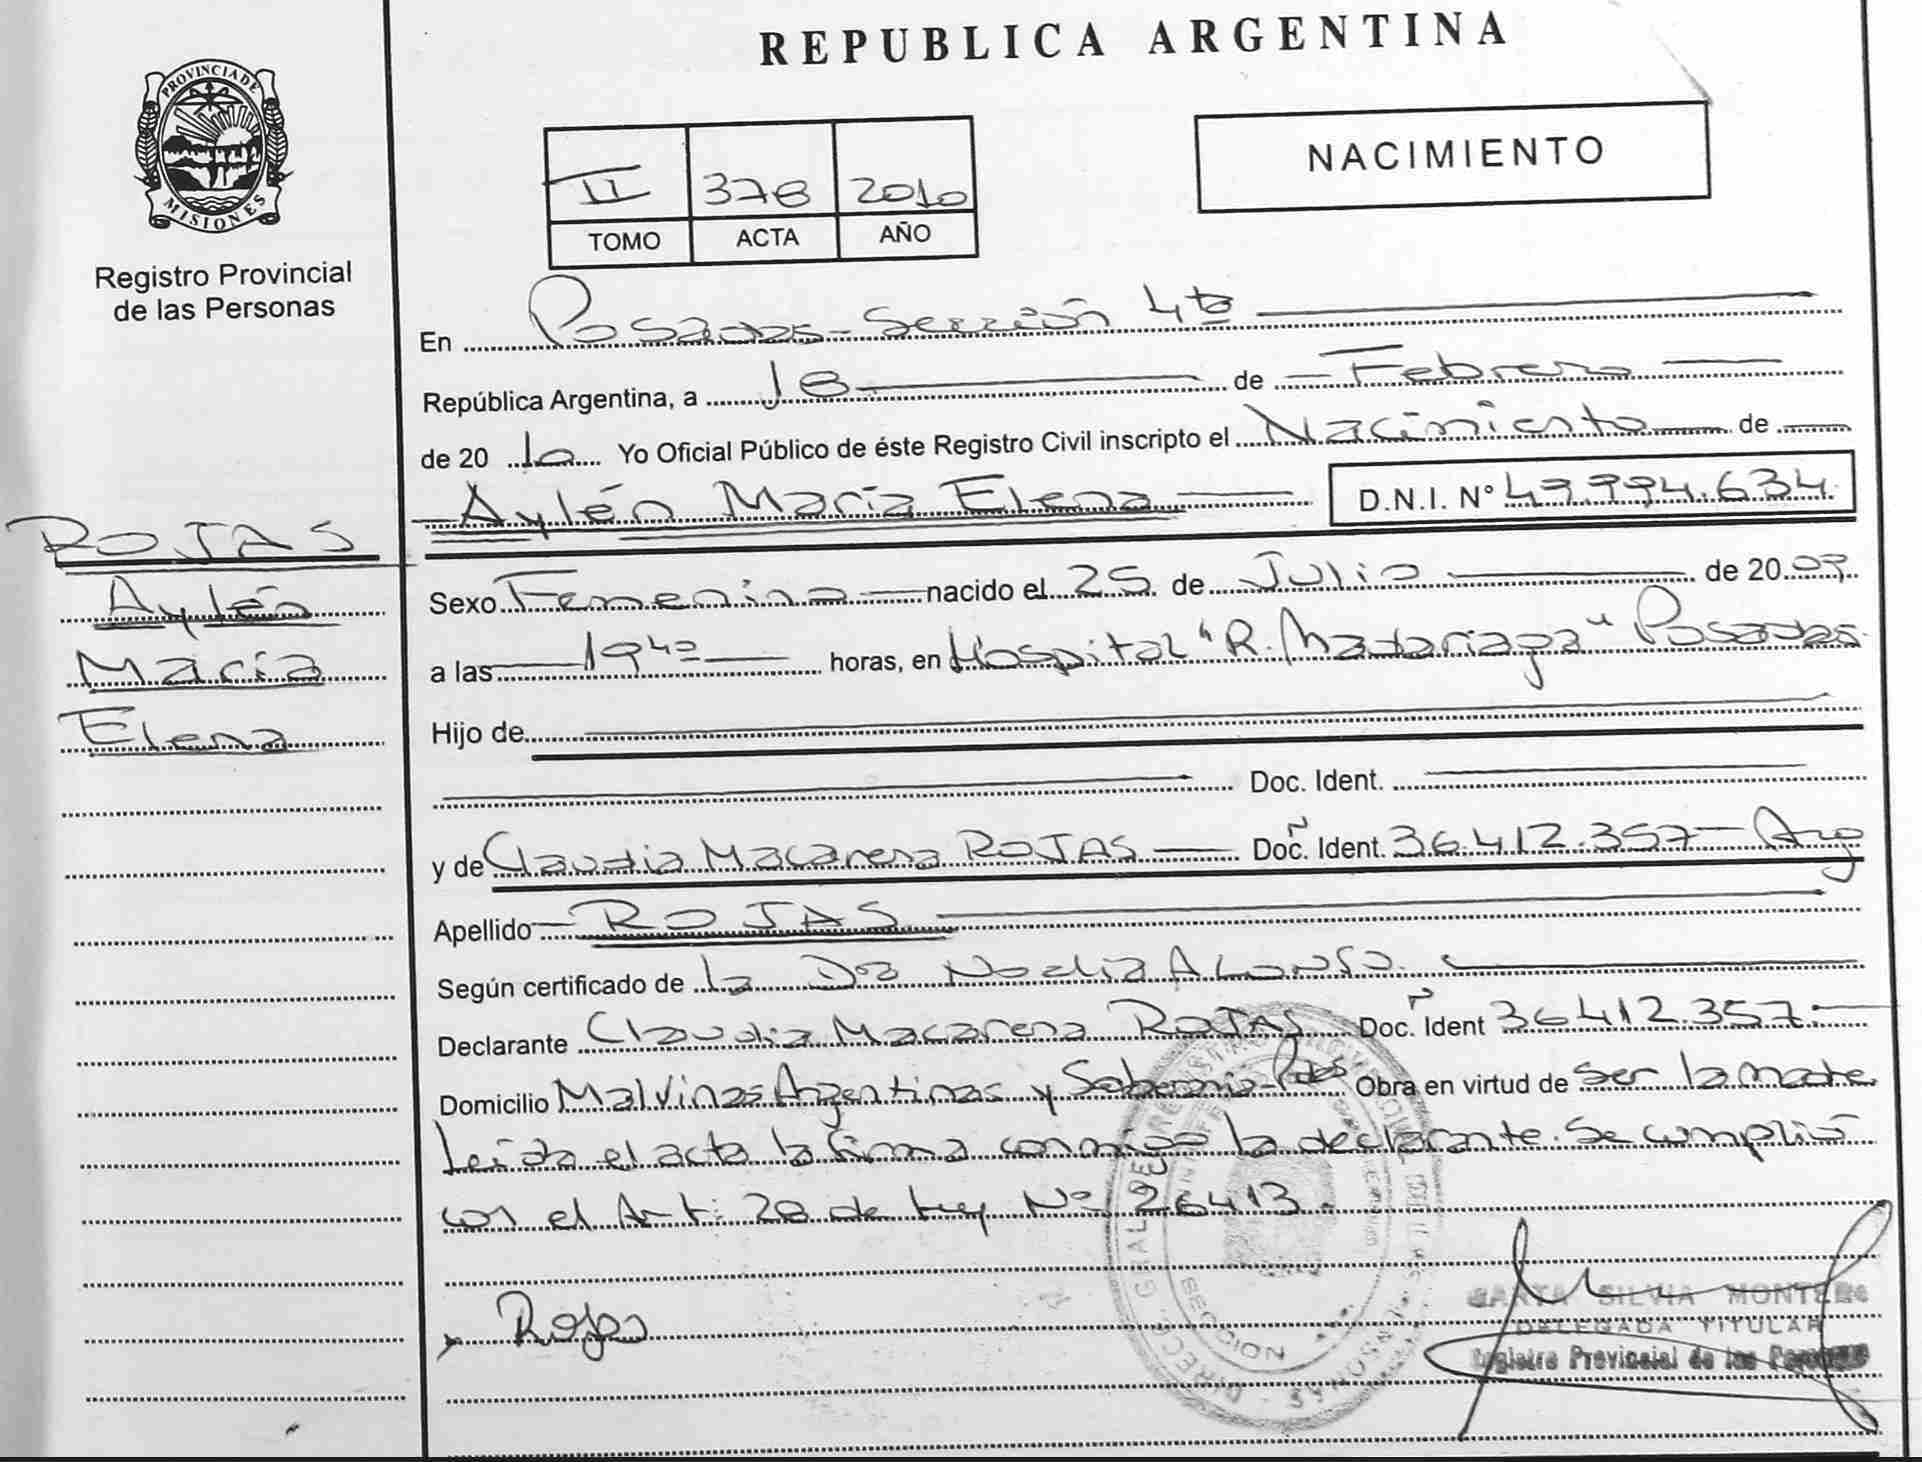 REPUBLICA ARGENTINA
PROVINCIA DE MISIONES
Registro Provincial
de las Personas
NACIMIENTO
II 378 2010
TOMO ACTA AÑO
En Posadas - Sección 4ta
República Argentina, a 18 de Febrero
de 2010 Yo Oficial Público de éste Registro Civil inscripto el Nacimiento de
Aylén María Elena D.N.I. N° 49.994.634
ROJAS
Aylén
María
Elena
Sexo Femenino nacido el 25 de Julio de 2009
a las 19 40 horas, en Hospital "R. Madariaga" Posadas
Hijo de
Doc. Ident.
y de Claudia Macarena ROJAS Doc. Ident. 36.412.357 - Arg
Apellido ROJAS
Según certificado de la Dra Noelia Alonso.
Declarante Claudia Macarena ROJAS Doc. Ident 36412.357.-
Domicilio Malvinas Argentinas y Soberanía - Pdas Obra en virtud de ser la madre.
Leída el acta la firma conmigo la declarante. Se cumplió
con el Art: 28 de Ley Nº 26413.
Rojas
SILVIA MONTERO
DELEGADA TITULAR
Registro Provincial de las Personas